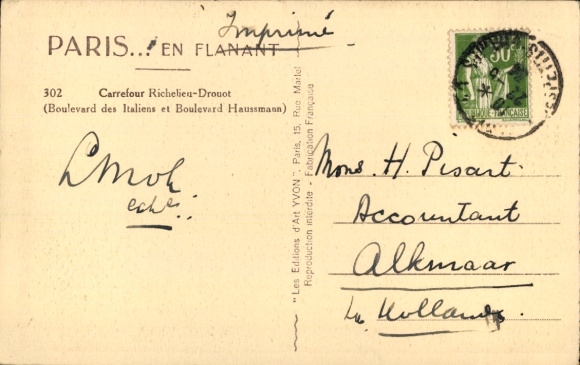 Imprimé
PARIS... EN FLANANT
302 Carrefour Richelieu-Drouot
(Boulevard des Italiens et Boulevard Haussmann)
"Les Editions d'Art YVON", Paris, 15, Rue Martel
Reproduction interdite - Fabrication Française
50c
FRANÇAISE
Mons. H. Pisart
Accountant
Alkmaar
Hollande